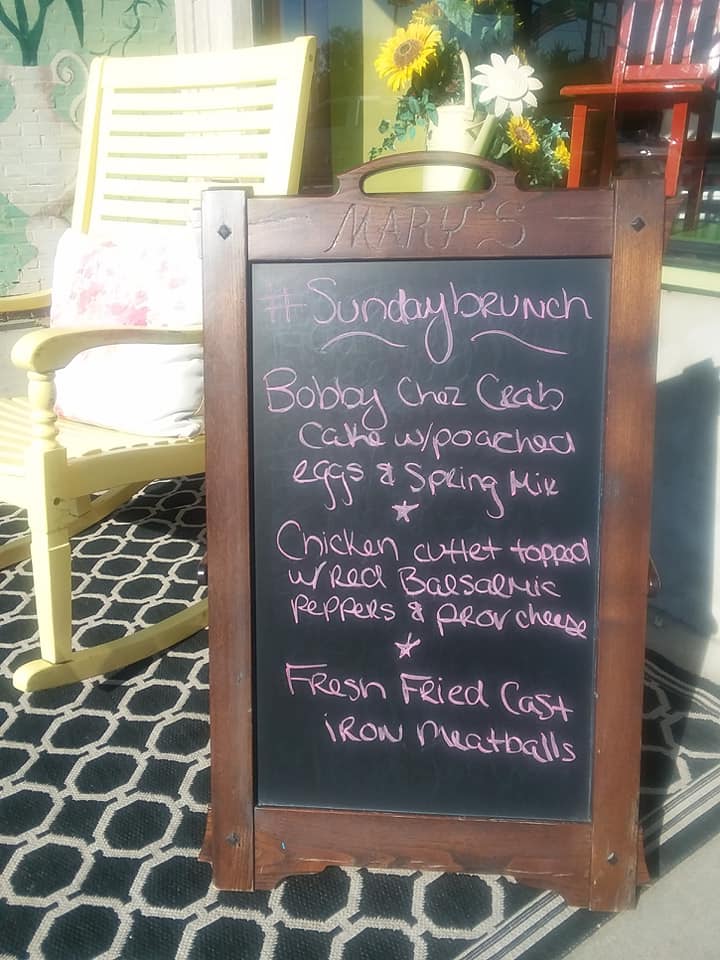 MARY'S
#Sundaybrunch
Bobby Chez Crab
Cake w/poached
eggs & Spring Mix
Chicken cutlet topped
w/Red Balsalmic
Peppers & Prov cheese
Fresh Fried Cast
iron Meatballs